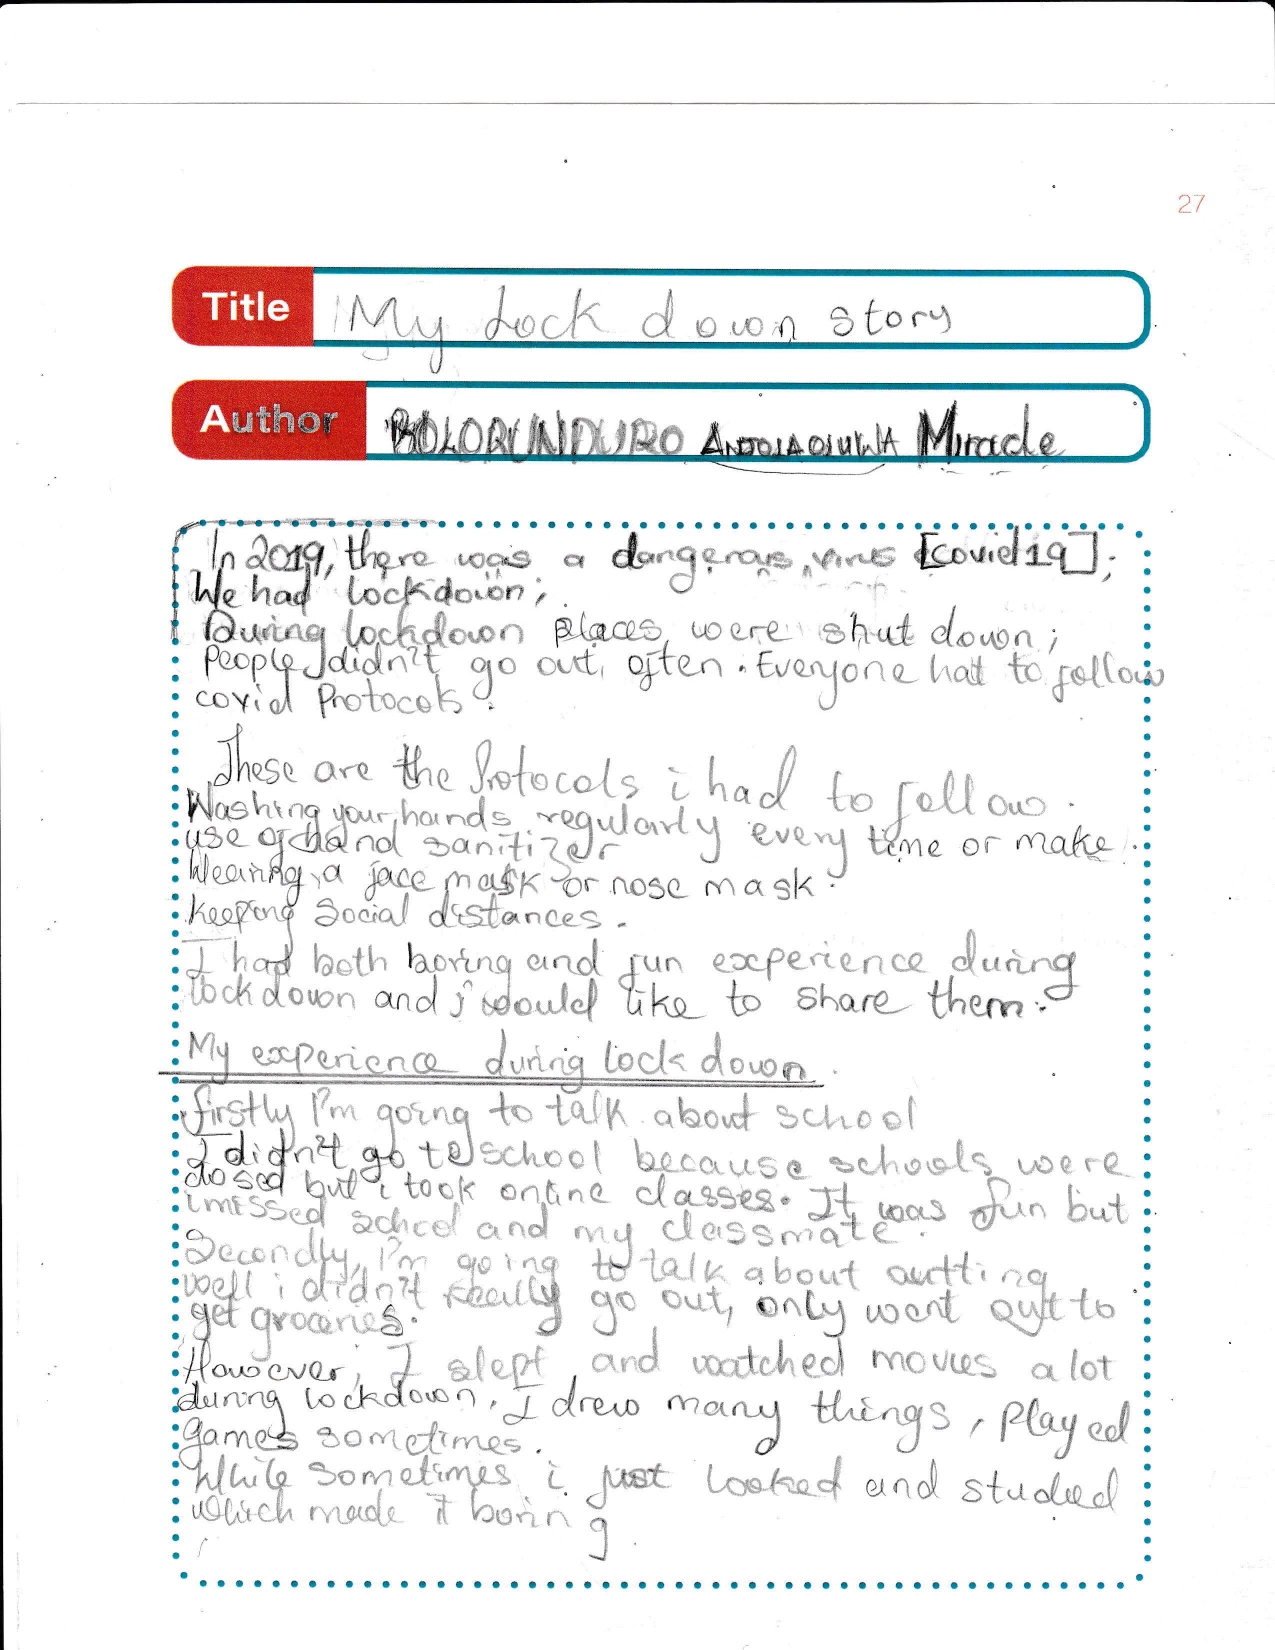 27
Title My Lock down story
Author BOLORUNDURO Miracle
In 2019, there was a dangerous virus [covid19];
We had lockdown;
During lockdown places were shut down;
People didn't go out often. Everyone hat to follow
covid Protocols.
These are the Protocols i had to follow.
Washing your hands regularly every time or make
use of hand sanitizer
Wearing a face mask or nose mask.
keeping Social distances.
I had both boring and fun experience during
lockdown and i would like to share them.
My experience during lock down
firstly I'm going to talk about school
I didn't go to school because schools were
closed but i took online classes. It was fun but
i missed school and my classmate.
Secondly, I'm going to talk about outting
well i didn't really go out, only went out to
get groceries.
However, I slept and watched movies a lot
during lockdown. I drew many things, played
games sometimes.
While sometimes i just looked and studied
which made it boring